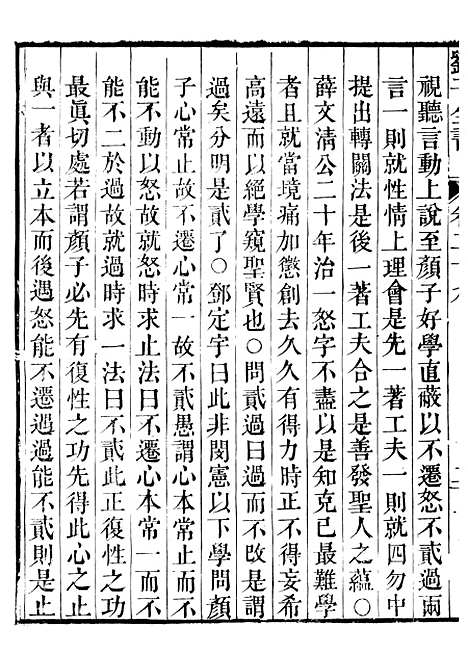 劉子全書
視聽言動上說至顏子好學直蔽以不遷怒不貳過兩
言一則就性情上理會是先一著工夫一則就四勿中
提出轉關法是後一著工夫合之是善發聖人之蘊○
薛文清公二十年治一怒字不盡以是知克己最難學
者且就當境痛加懲創去久久有得力時正不得妄希
高遠而以絕學窺聖賢也○問貳過曰過而不改是謂
過矣分明是貳了○鄧定宇曰此非閔憲以下學問顏
子心常止故不遷心常一故不貳愚謂心本常止而不
能不動以怒故就怒時求止法曰不遷心本常一而不
能不二於過故就過時求一法曰不貳此正復性之功
最眞切處若謂顏子必先有復性之功先得此心之止
與一者以立本而後遇怒能不遷遇過能不貳則是止